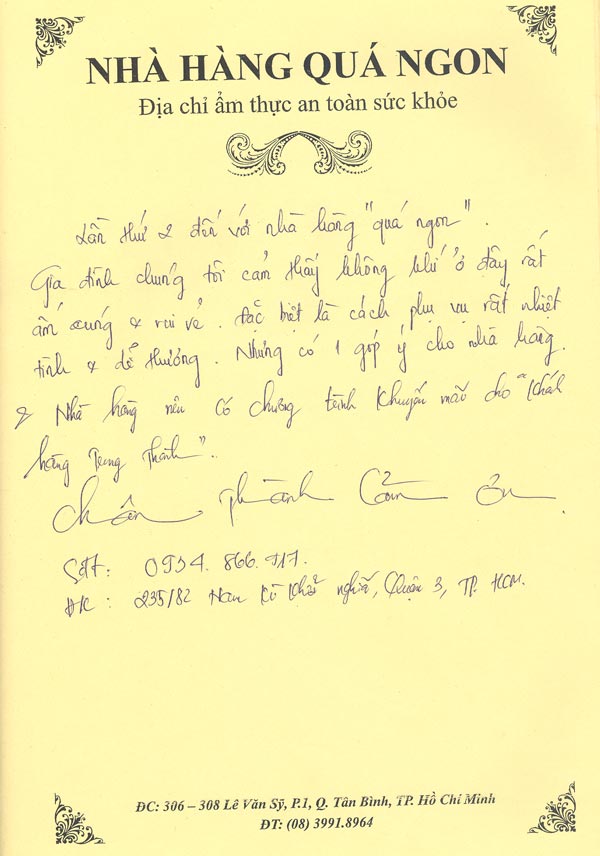 NHÀ HÀNG QUÁ NGON
Địa chỉ ẩm thực an toàn sức khỏe
Lần thứ 2 đến với nhà hàng "quá ngon".
Gia đình chúng tôi cảm thấy không khí ở đây rất
ấm cúng & vui vẻ. Đặc biệt là cách phục vụ rất nhiệt
tình & dễ thương. Nhưng có 1 góp ý cho nhà hàng.
Nhà hàng nên có chương trình khuyến mãi cho "khách
hàng Trung Thành".
Chân Thành Cảm ơn
Sđt: 0934. 866. 717.
ĐC: 235/82 Nam Kì Khởi nghĩa, Quận 3, TP. HCM.
ĐC: 306 – 308 Lê Văn Sỹ, P.1, Q. Tân Bình, TP. Hồ Chí Minh
ĐT: (08) 3991.8964